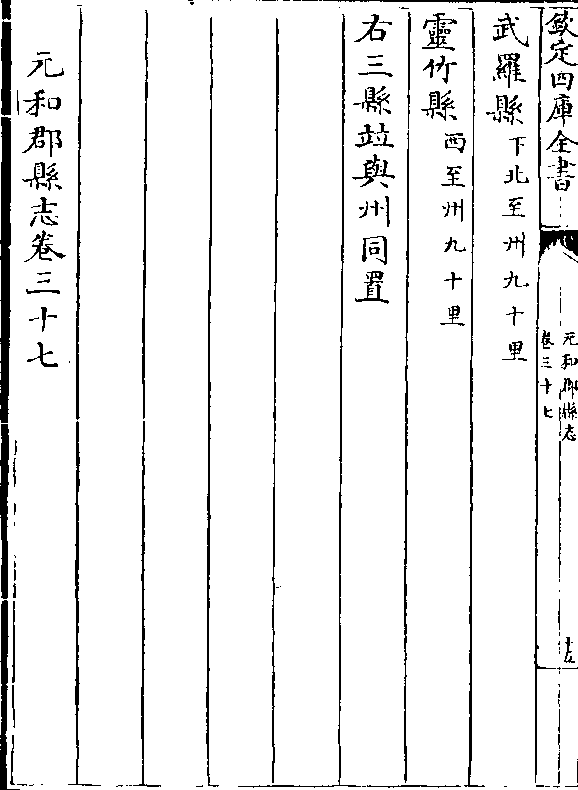 欽定四庫全書
元和郡縣志
卷三十七
武羅縣下北至州九十里
靈竹縣西至州九十里
右三縣竝與州同置
元和郡縣志卷三十七